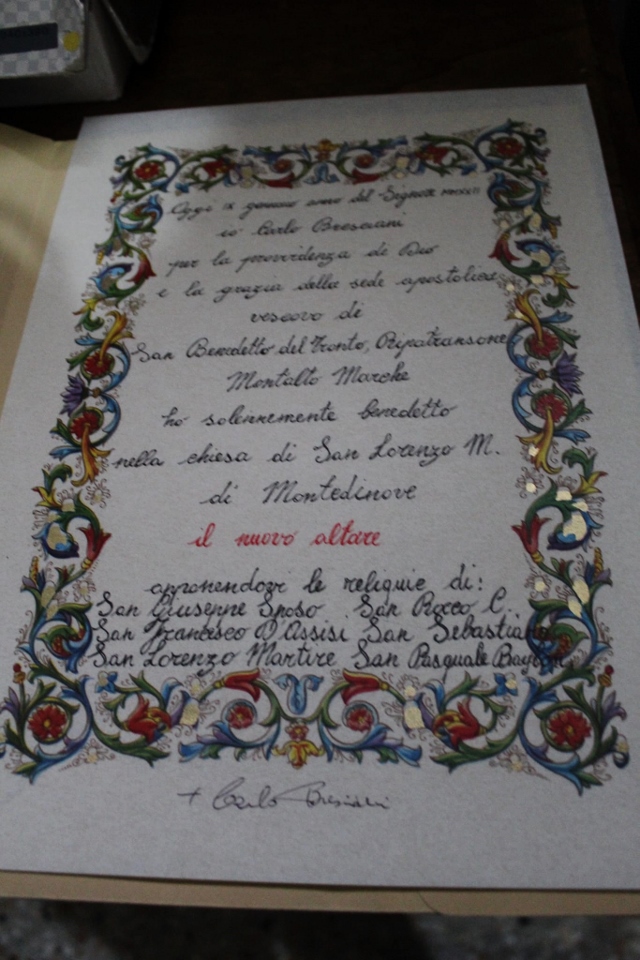 Oggi IX gennaio anno del Signore
io Carlo Bresciani
per la provvidenza di Dio
e la grazia della sede apostolica
vescovo di
San Benedetto del Tronto, Ripatransone
Montalto Marche
ho solennemente benedetto
nella chiesa di San Lorenzo M.
di Montedinove
il nuovo altare
apponendovi le reliquie di:
San Giuseppe Sposo San Rocco C.
San Francesco D'Assisi San Sebastiano
San Lorenzo Martire San Pasquale Baylon
+ Carlo Bresciani